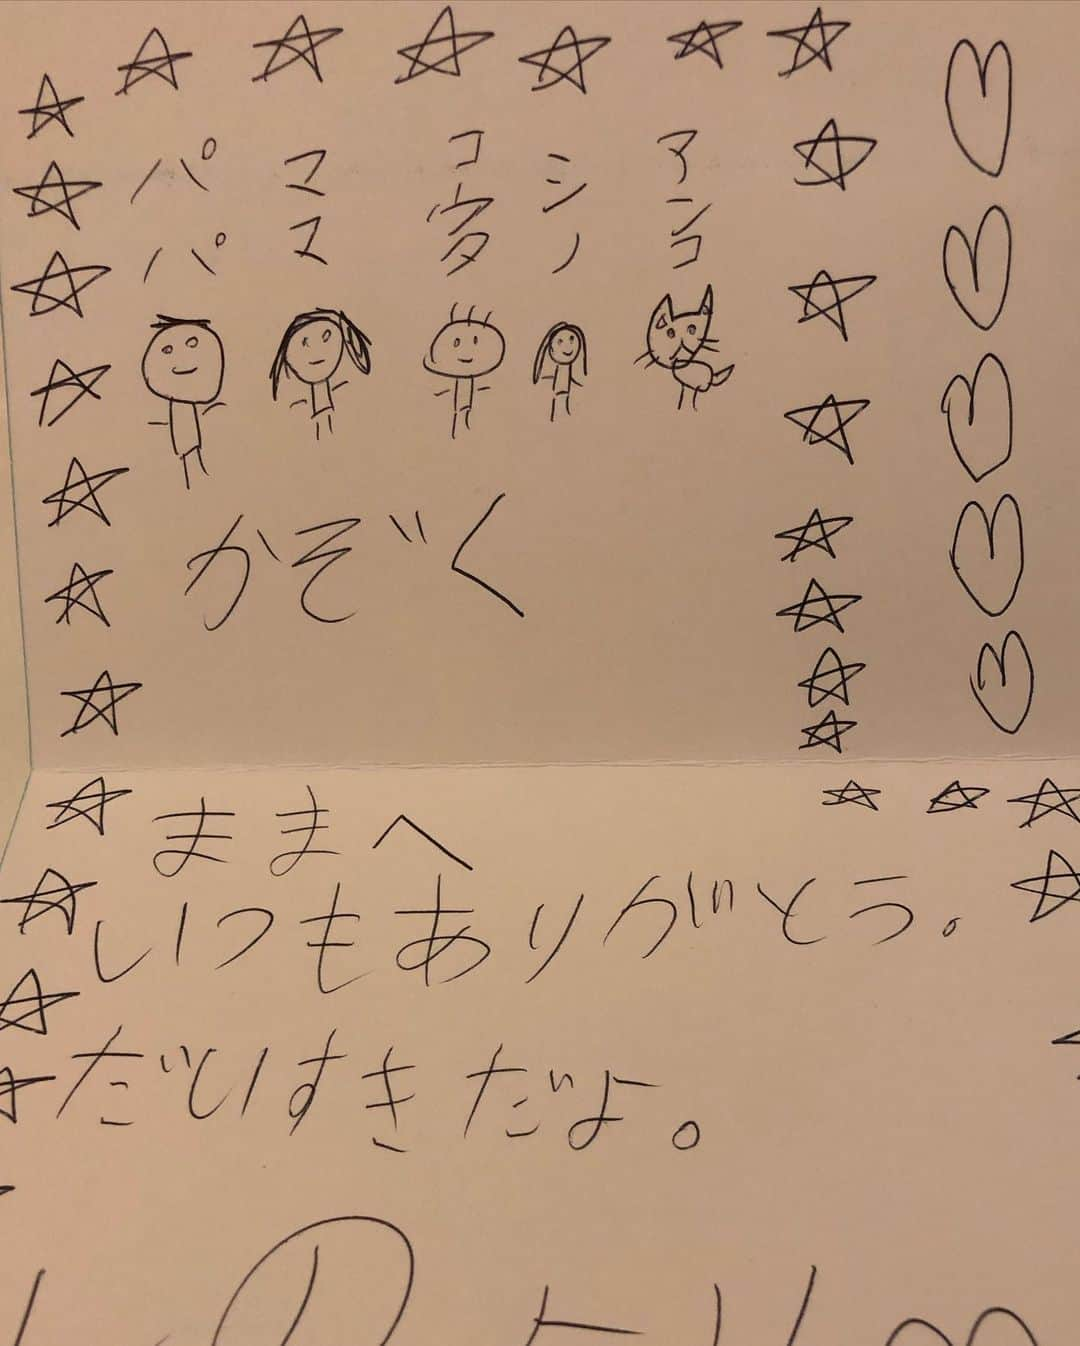 パパ
ママ
コウタ
シノ
アンコ
かぞく
ままへ
いつもありがとう。
だいすきだよ。